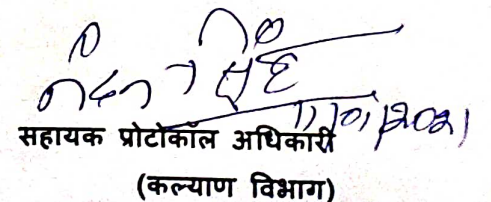 सिंह
11/01/2021
सहायक प्रोटोकॉल अधिकारी
(कल्याण विभाग)